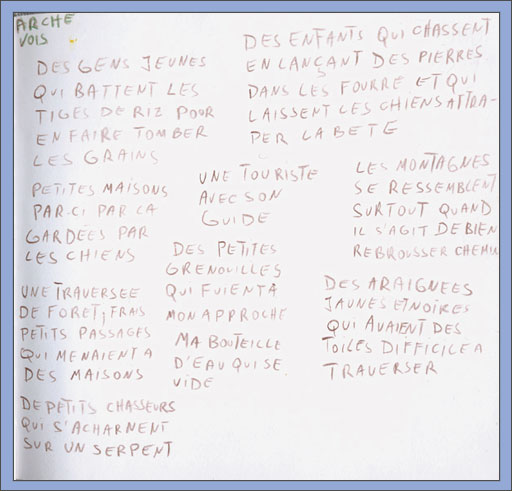 ARCHE
VOIS
DES GENS JEUNES
QUI BATTENT LES
TIGES DE RIZ POUR
EN FAIRE TOMBER
LES GRAINS
DES ENFANTS QUI CHASSENT
EN LANÇANT DES PIERRES
DANS LES FOURRE ET QUI
LAISSENT LES CHIENS ATTRA-
PER LA BETE
PETITES MAISONS
PAR-CI PAR LA
GARDÉES PAR
LES CHIENS
UNE TOURISTE
AVEC SON
GUIDE
LES MONTAGNES
SE RESSEMBLENT
SURTOUT QUAND
IL S'AGIT DE BIEN
REBROUSSER CHEMIN
DES PETITES
GRENOUILLES
QUI FUIENT A
MON APPROCHE
UNE TRAVERSEE
DE FORET, FRAIS
PETITS PASSAGES
QUI MENAIENT A
DES MAISONS
MA BOUTEILLE
D'EAU QUI SE
VIDE
DES ARAIGNEES
JAUNES ET NOIRES
QUI AVAIENT DES
TOILES DIFFICILE A
TRAVERSER
DE PETITS CHASSEURS
QUI S'ACHARNENT
SUR UN SERPENT